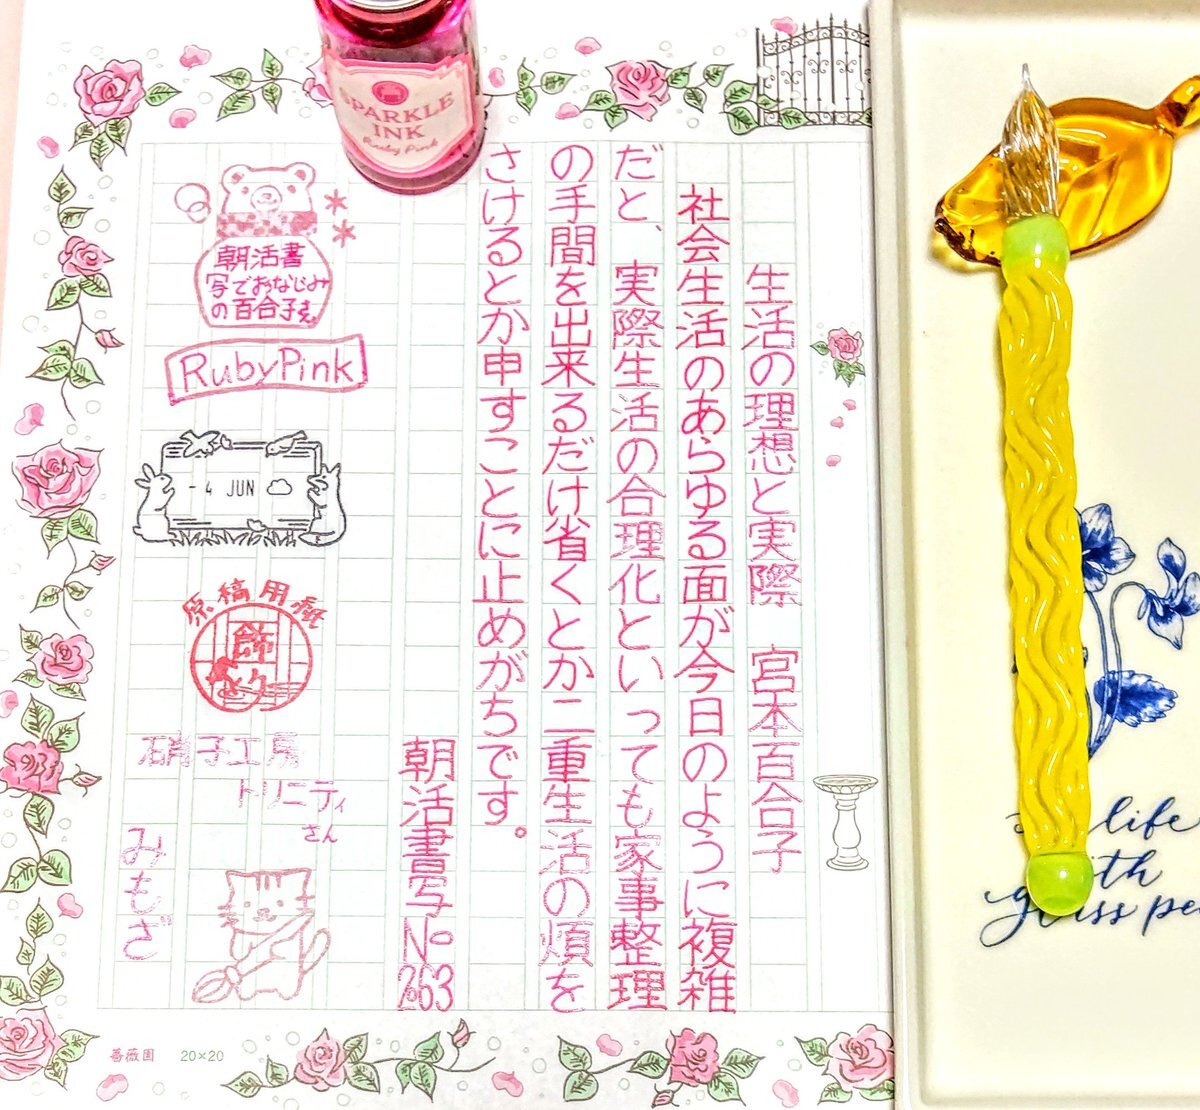 生活の理想と実際　宮本百合子
社会生活のあらゆる面が今日のように複雑
だと、実際生活の合理化といっても家事整理
の手間を出来るだけ省くとか二重生活の煩を
さけるとか申すことに止めがちです。
朝活書写No263
SPARKLE
INK
Ruby Pink
朝活書
写でおなじみ
の百合子さん
RubyPink
-4 JUN
原稿用紙
飾り
硝子工房
トリニティ
さん
みもざ
薔薇園 20×20
life
with
glass pe